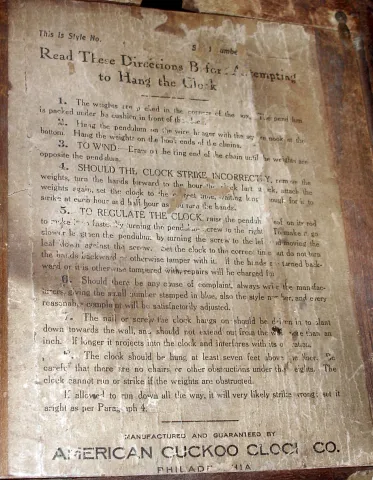 This is Style No.
Read These Directions Before Attempting
to Hang the Clock
1. The weights are packed in the corners of the box, the pendulum
is packed under the cushion in front of the
2. Hang the pendulum on the wire hanger with the hook at the
bottom. Hang the weights on the hook ends of the chains.
3. TO WIND— the ring end of the chain until the weights are
opposite the pendulum.
4. SHOULD THE CLOCK STRIKE INCORRECTLY, remove the
weights, turn the hands forward to the hour the clock last struck, attach the
weights again, set the clock to the correct time, waiting for it to
strike at each hour and half hour as you turn the hands.
5. TO REGULATE THE CLOCK, raise the pendulum on its rod
to make it go faster. By turning the pendulum screw to the right To make it go
slower lower the pendulum, by turning the screw to the left and moving the
leaf down against the screw. Set the clock to the correct time but do not turn
the hands backward or otherwise tamper with it. If the hands are turned back-
ward or it is otherwise tampered with, repairs will be charged for.
6. Should there be any cause of complaint, always write the manufac-
turers, giving the small number stamped in blue, also the style number, and every
reasonable complaint will be satisfactorily adjusted.
7. The nail or screw the clock hangs on should be driven in to slant
down towards the wall, and should not extend out from the wall more than an
inch. If longer it projects into the clock and interferes with its
8. The clock should be hung at least seven feet above the floor. Be
careful that there are no chairs, or other obstructions under the weights. The
clock cannot run or strike if the weights are obstructed.
If allowed to run down all the way, it will very likely strike wrong; set it
aright as per Paragraph 4.
MANUFACTURED AND GUARANTEED BY
AMERICAN CUCKOO CLOCK CO.
PHILADELPHIA